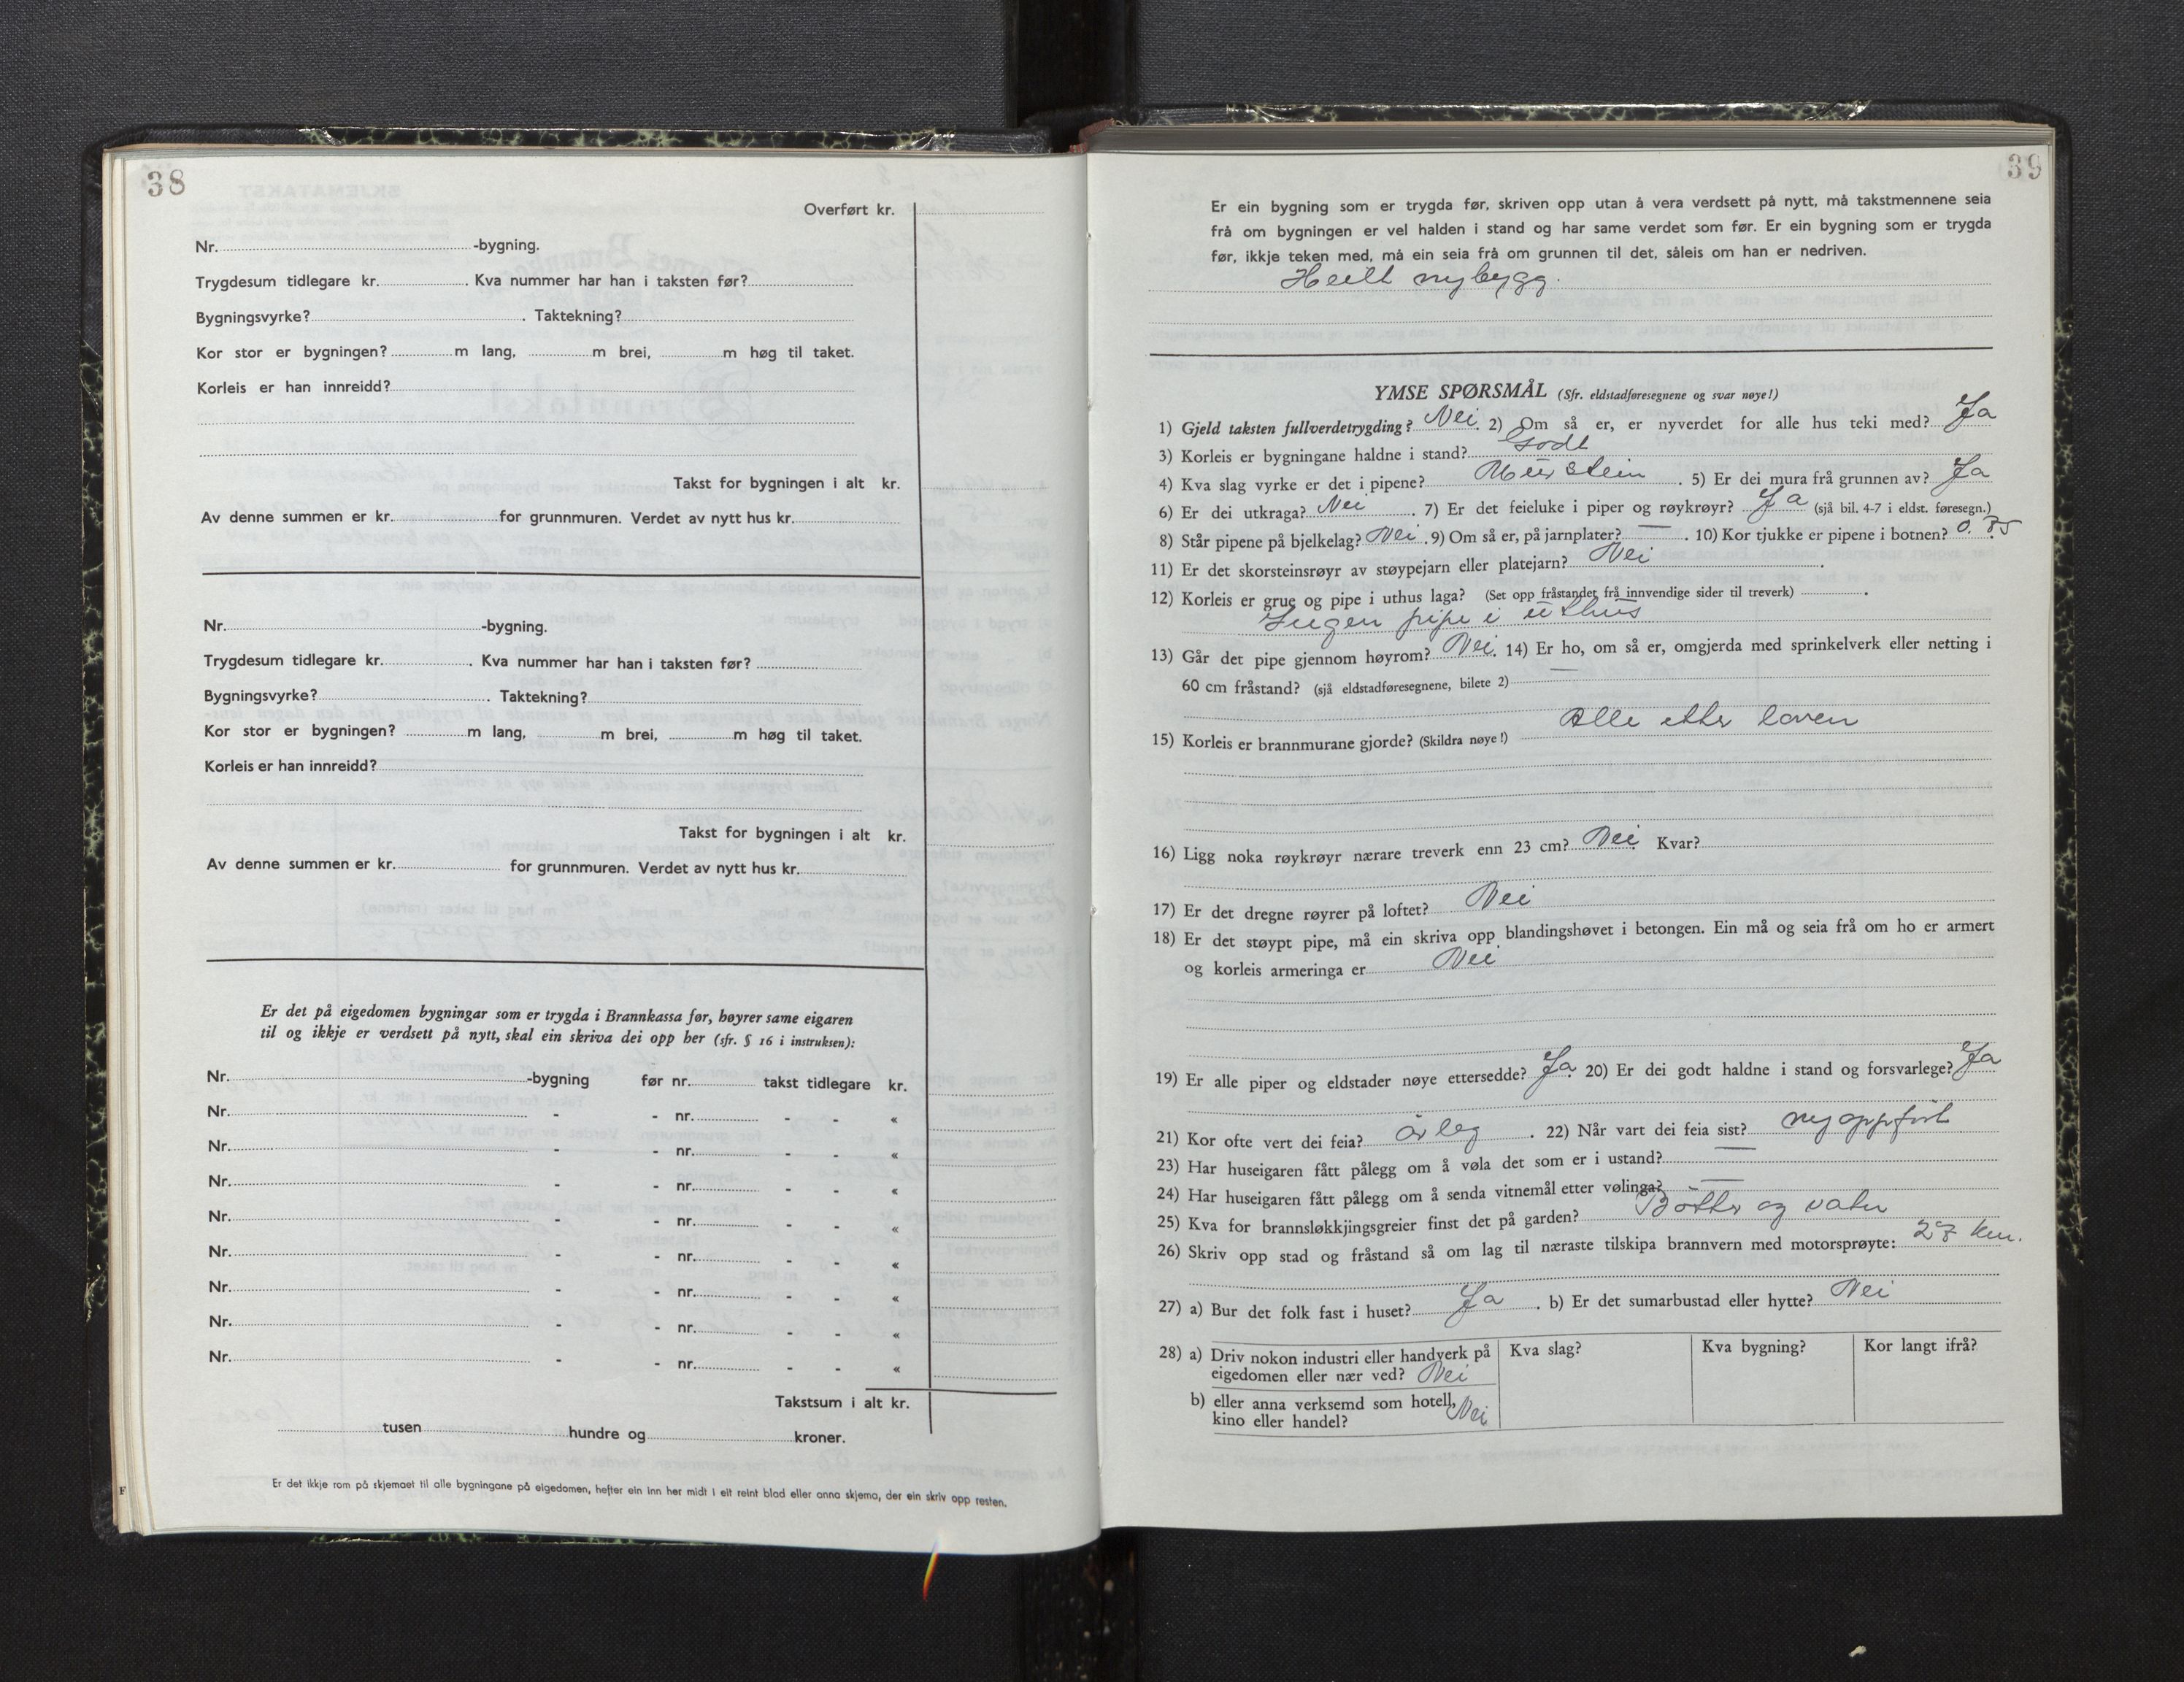 38
Overført kr.
Nr. -bygning.
Trygdesum tidlegare kr. . Kva nummer har han i taksten før?
Bygningsvyrke? . Taktekning?
Kor stor er bygningen? m lang, m brei, m høg til taket.
Korleis er han innreidd?
Takst for bygningen i alt kr.
Av denne summen er kr. for grunnmuren. Verdet av nytt hus kr.
Nr. -bygning.
Trygdesum tidlegare kr. . Kva nummer har han i taksten før?
Bygningsvyrke? . Taktekning?
Kor stor er bygningen? m lang, m brei, m høg til taket.
Korleis er han innreidd?
Takst for bygningen i alt kr.
Av denne summen er kr. for grunnmuren. Verdet av nytt hus kr.
Er det på eigedomen bygningar som er trygda i Brannkassa før, høyrer same eigaren
til og ikkje er verdsett på nytt, skal ein skriva dei opp her (sfr. § 16 i instruksen):
Nr. -bygning før nr. takst tidlegare kr.
Nr. - - nr. - - «
Nr. - - nr. - - «
Nr. - - nr. - - «
Nr. - - nr. - - «
Nr. - - nr. - - «
Nr. - - nr. - - «
Nr. - - nr. - - «
Nr. - - nr. - - «
Takstsum i alt kr.
tusen hundre og kroner.
Er det ikkje rom på skjemaet til alle bygningane på eigedomen, hefter ein inn her midt i eit reint blad eller anna skjema, der ein skriv opp resten.
F
39
Er ein bygning som er trygda før, skriven opp utan å vera verdsett på nytt, må takstmennene seia
frå om bygningen er vel halden i stand og har same verdet som før. Er ein bygning som er trygda
før, ikkje teken med, må ein seia frå om grunnen til det, såleis om han er nedriven.
Heilt nybygg.
YMSE SPØRSMÅL (Sfr. eldstadføresegnene og svar nøye!)
1) Gjeld taksten fullverdetrygding? Nei. 2) Om så er, er nyverdet for alle hus teki med? Ja
3) Korleis er bygningane haldne i stand? Godt
4) Kva slag vyrke er det i pipene? Murstein . 5) Er dei mura frå grunnen av? Ja
6) Er dei utkraga? Nei . 7) Er det feieluke i piper og røykrøyr? Ja (sjå bil. 4-7 i eldst. føresegn.)
8) Står pipene på bjelkelag? Nei . 9) Om så er, på jarnplater? — . 10) Kor tjukke er pipene i botnen?
11) Er det skorsteinsrøyr av støypejarn eller platejarn? Nei .
12) Korleis er grue og pipe i uthus laga? (Set opp fråstandet frå innvendige sider til treverk) .
Ingen pipe i uthus
13) Går det pipe gjennom høyrom? Nei. 14) Er ho, om så er, omgjerda med sprinkelverk eller netting i
60 cm fråstand? (sjå eldstadføresegnene, bilete 2) —
15) Korleis er brannmurane gjorde? (Skildra nøye!) Alle etter loven
16) Ligg noka røykrøyr nærare treverk enn 23 cm? Nei Kvar?
17) Er det dregne røyrer på loftet? Nei
18) Er det støypt pipe, må ein skriva opp blandingshøvet i betongen. Ein må og seia frå om ho er armert
og korleis armeringa er Nei
19) Er alle piper og eldstader nøye ettersedde? Ja. 20) Er dei godt haldne i stand og forsvarlege? Ja
21) Kor ofte vert dei feia? årleg . 22) Når vart dei feia sist? ny oppført
23) Har huseigaren fått pålegg om å vøla det som er i ustand? —
24) Har huseigaren fått pålegg om å senda vitnemål etter vølinga? —
25) Kva for brannsløkkjingsgreier finst det på garden? Bøtter og vatn
26) Skriv opp stad og fråstand så om lag til næraste tilskipa brannvern med motorsprøyte: km.
27) a) Bur det folk fast i huset? Ja . b) Er det sumarbustad eller hytte? Nei
28) a) Driv nokon industri eller handverk på Kva slag? Kva bygning? Kor langt ifrå?
eigedomen eller nær ved? Nei
b) eller anna verksemd som hotell,
kino eller handel? Nei